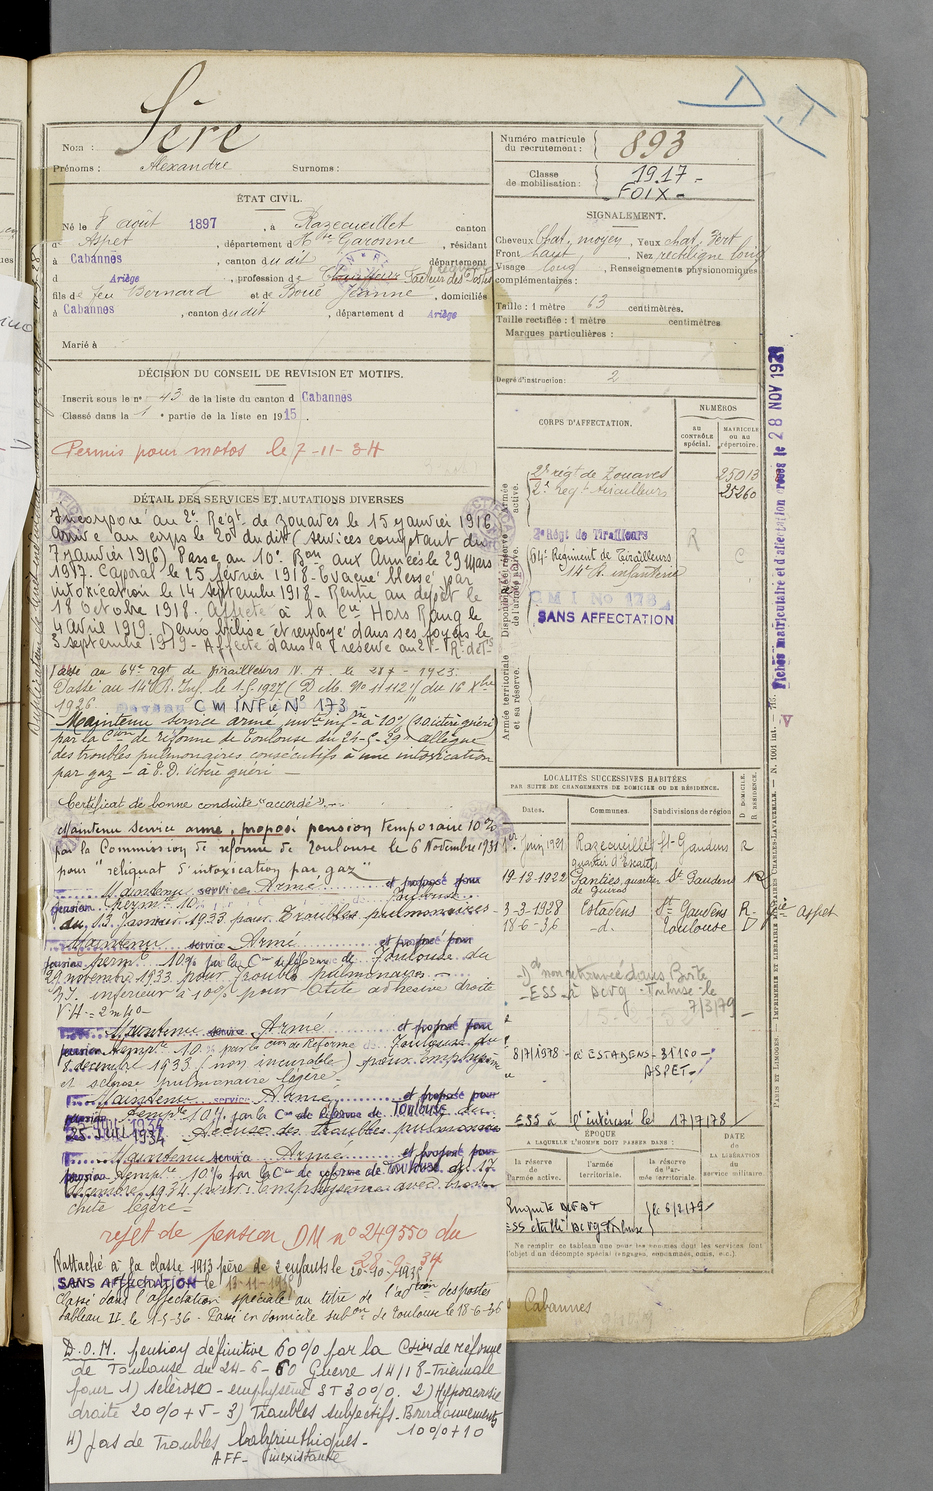 Nom : Sère
Prénoms : Alexandre Surnoms :
ÉTAT CIVIL.
Né le 8 août 1897, à Razecueillet canton
d' Aspet, département d Hte Garonne, résidant
à Cabannes, canton du dit département
d Ariège, profession de Facteur des Postes
fils de feu Bernard et de Boué Jeanne, domiciliés
à Cabannes, canton du dit, département d Ariège
Marié à
DÉCISION DU CONSEIL DE REVISION ET MOTIFS.
Inscrit sous le n° 43 de la liste du canton d Cabannes
Classé dans la 1e partie de la liste en 1915
Permis pour motos le 7-11-34
DÉTAIL DES SERVICES ET MUTATIONS DIVERSES
Incorporé au 2e Régt de Zouaves le 15 janvier 1916
Arrivé au corps le 20 du dit (services comptant du
7 janvier 1916) Passé au 10e Bon aux Armées le 29 Mars
1917. Caporal le 25 février 1918. Evacué blessé par
intoxication le 14 septembre 1918 - Rentré au dépôt le
18 octobre 1918. Affecté à la Cie Hors Rang le
4 avril 1919. Démobilisé et renvoyé dans ses foyers le
3 septembre 1919 - Affecté dans la réserve au 2e Rt de Tirs
Passé au 64e rgt de Tirailleurs N. A. le 1923.
Passé au 14e R. Inf. le 1-5-1927 (D.M. No 11112 du 16 Xbre
1926.
C M INFie N° 173
Maintenu service armé à 10% (ictère guéri)
par la Cion de réforme de Toulouse du 24-5-29 allègue
des troubles pulmonaires consécutifs à une intoxication
par gaz - à E.D. ictère guéri -
Certificat de bonne conduite "accordé".
Maintenu service armé, proposé pension temporaire 10%
par la Commission de réforme de Toulouse le 6 Novembre 1931
pour "reliquat d'intoxication par gaz"
Maintenu service Armé et proposé pour
pension perm. 10% Toulouse
du 13 Janvier 1933 pour Troubles pulmonaires
Maintenu service Armé et proposé pour
pension perm. 10% par la Con de réforme de Toulouse du
29 novembre 1933 pour trouble pulmonaires -
inférieur à 10% pour Otite adhésive droite
VH = 2m40 -
Maintenu service Armé et proposé pour
pension temp. 10% par la Cion de Réforme de Toulouse du
8 décembre 1933 (non incurable) pour emphysème
et sclérose pulmonaire légère -
Maintenu service Armé et proposé pour
pension temp. 10% par la Con de réforme de Toulouse du
25 JUIL 1934 Accuse des troubles pulmonaires
Maintenu service Armé et proposé pour
pension temp. 10% par la Con de réforme de Toulouse du 17
décembre 1934 pour Emphysème avec bronchite légère -
rejet de pension DM n° 249550 du
28-9-34
Rattaché à la classe 1913 père de 2 enfants le 20-10-1935
SANS AFFECTATION le 13-11-1935
Classé dans l'affectation spéciale au titre de l'adtion des postes
tableau II le 1-5-36 - Passé en domicile subon de Toulouse le 18-6-36
D.O.M. pension définitive 60% par la Coion de réforme
de Toulouse du 24-6-60 Guerre 14/18 - Triennale
pour 1) sclérose - emphysème ST 30%. 2) Hypoacousie
droite 20% + 5 - 3) Troubles subjectifs - Bourdonnements
10% + 10
4) pas de Troubles labyrinthiques -
AFF - inexistante
Numéro matricule du recrutement : 893
Classe de mobilisation : 1917 -
FOIX -
SIGNALEMENT.
Cheveux Chat. moyen, Yeux chat. vert
Front haut, Nez rectiligne long
Visage long, Renseignements physionomiques
complémentaires :
Taille : 1 mètre 63 centimètres.
Taille rectifiée : 1 mètre centimètres
Marques particulières :
Degré d'instruction : 2
CORPS D'AFFECTATION.
NUMÉROS
AU CONTRÔLE spécial.
MATRICULE OU AU répertoire.
2e régt de Zouaves 25013
2e Regt Tirailleurs 25260
2e Régt de Tirailleurs R
64e Régiment de Tirailleurs C
14e R. infanterie
C M I No 173
SANS AFFECTATION
Armée active.
Disponibilité et réserve de l'armée active.
Armée territoriale et sa réserve.
Fiches matriculaire et d'affectation créées le 28 NOV 1921
LOCALITÉS SUCCESSIVES HABITÉES
PAR SUITE DE CHANGEMENTS DE DOMICILE OU DE RÉSIDENCE.
Dates. Communes. Subdivisions de région D. DOMICILE. R. RÉSIDENCE.
1er Juin 1921 Razecueillé St-Gaudens R
19-12-1922 Ganties, quartier St Gaudens R
3-3-1928 Estadens St Gaudens R - Aspet
18-6-36 -d- Toulouse D
non retrouvée dans Boîte
- ESS - à DCVG - Toulouse le
7/3/79
8/7/1978 - à ESTADENS - 31160 -
ASPET -
ESS à l'intéressé le 17/7/78
ÉPOQUE
A LAQUELLE L'HOMME DOIT PASSER DANS :
DATE DE LA LIBÉRATION du service militaire.
la réserve de l'armée active. l'armée territoriale. la réserve de l'armée territoriale.
Enquête le 6/2/79
Ne remplir ce tableau que pour les hommes dont les services font
l'objet d'un décompte spécial (engagés, ensoumis, omis, etc.).
Cabannes
PARIS ET LIMOGES. — IMPRIMERIE ET LIBRAIRIE MILITAIRES CHARLES-LAVAUZELLE.